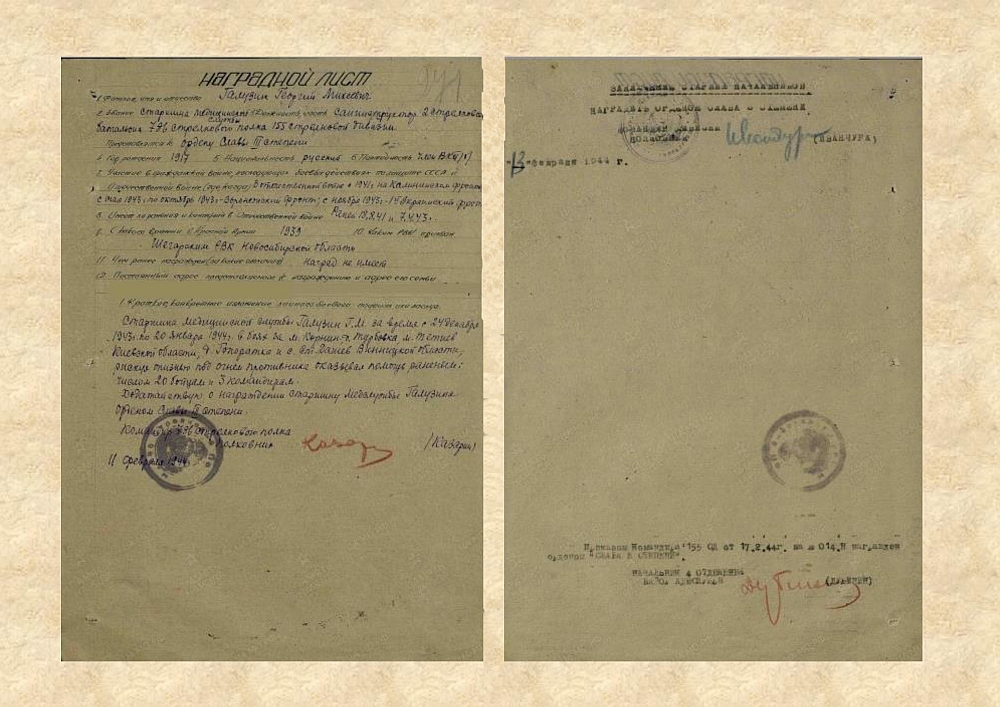 НАГРАДНОЙ ЛИСТ
1. Фамилия, имя и отчество Галузин Георгий Микеевич
2. Звание Старшина медицинской службы 3. Должность, часть Санинструктор 2 стрелкового
батальона 736 стрелкового полка 155 стрелковой дивизии.
Представляется к ордену Славы III степени
4. Год рождения 1917 5. Национальность русский 6. Партийность член ВКП(б)
7. Участие в гражданской войне, последующих боевых действиях по защите СССР и
Отечественной войне (где, когда) В отечественной войне с 1941г на Калининском фронте
с мая 1943г. по октябрь 1943г- Воронежский фронт, с ноября 1943г- 1й Украинский фронт
8. Имеет ли ранения и контузии в Отечественной войне Ранен 18.8.41 и 7.4.43г.
9. С какого времени в Красной Армии 1939 10. Каким РВК призван
Шегарским РВК Новосибирской область
11. Чем ранее награжден (за какие отличия) наград не имеет
12. Постоянный адрес представляемого к награждению и адрес его семьи
1. Краткое, конкретное изложение личного боевого подвига или заслуг
Старшина медицинской службы Галузин Г.М. за время с 24 декабря
1943г. по 20 января 1944г. в боях за м. Корнин, с. Турбовка, м. Тетиев
Киевской области, и с. Винницкой области,
рискуя жизнью под огнем противника оказывал помощь раненым:
числом 20 бойцам и 3 командирам.
Ходатайствую о награждении старшину медслужбы Галузина
орденом Славы III степени.
Командир 736 стрелкового полка
полковник (Казарин)
11 февраля 1944г.
141
НАГРАДИТЬ ОРДЕНОМ СЛАВА 3 СТЕПЕНИ
КОМАНДИР ДИВИЗИИ
ПОЛКОВНИК (ИВАНЧУРА)
"13" февраля 1944 г.
Приказом Командира 155 СД от 17.2.44г. за № 014/Н награжден
орденом "СЛАВА 3 СТЕПЕНИ".
НАЧАЛЬНИК 4 ОТДЕЛЕНИЯ